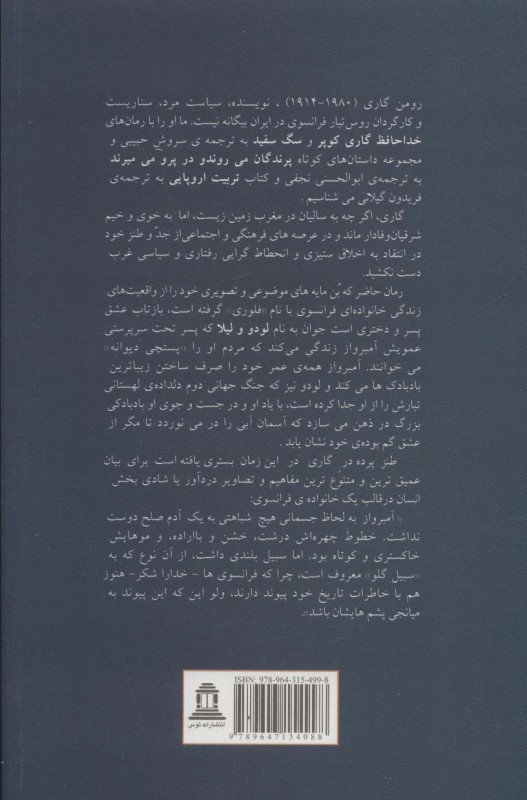 رومن گاری (۱۹۸۰-۱۹۱۴) ، نویسنده، سیاست مرد، سناریست
و کارگردان روس‌تبار فرانسوی در ایران بیگانه نیست. ما او را با رمان‌های
خداحافظ گاری کوپر و سگ سفید به ترجمه ی سروش حبیبی و
مجموعه داستان‌های کوتاه پرندگان می روندو در پرو می میرند
به ترجمه‌ی ابوالحسنی نجفی و کتاب تربیت اروپایی به ترجمه‌ی
فریدون گیلانی می شناسیم .
گاری، اگر چه به سالیان در مغرب زمین زیست، اما به خوی و خیم
شرقیان‌وفادار ماند و در عرصه های فرهنگی و اجتماعی‌از جدّ و طنز خود
در انتقاد به اخلاق ستیزی و انحطاط گرایی رفتاری و سیاسی غرب
دست نکشید.
رمان حاضر که بُن مایه های موضوعی و تصویری خود را از واقعیت‌های
زندگی خانواده‌ای فرانسوی با نام «فلوری» گرفته است، بازتاب عشق
پسر و دختری است جوان به نام لودو و لیلا که پسر تحت سرپرستی
عمویش آمبرواز زندگی می‌کند که مردم او را «پستچی دیوانه»
می خوانند. آمبرواز همه‌ی عمر خود را صرف ساختن زیباترین
بادبادک ها می کند و لودو نیز که جنگ جهانی دوم دلداده‌ی لهستانی
تبارش را از او جدا کرده است، با یاد او و در جست و جوی او بادبادکی
بزرگ در ذهن می سازد که آسمان آبی را در می نوردد تا مگر از
عشق گم بوده‌ی خود نشان یابد .
طنز پرده در گاری در این زمان بستری یافته است برای بیان
عمیق ترین و متنوّع ترین مفاهیم و تصاویر دردآور یا شادی بخش
انسان درقالب یک خانواده ی فرانسوی:
« آمبرواز به لحاظ جسمانی هیچ شباهتی به یک آدم صلح دوست
نداشت. خطوط چهره‌اش درشت، خشن و بااراده، و موهایش
خاکستری و کوتاه بود. اما سبیل بلندی داشت، از آن نوع که به
«سبیل گلو» معروف است، چرا که فرانسوی ها - خدارا شکر- هنوز
هم با خاطرات تاریخ خود پیوند دارند، ولو این که این پیوند به
میانجی پشم هایشان باشد».
ISBN: 978-964-315-499-8
انتشارات توس
9 789647 134088